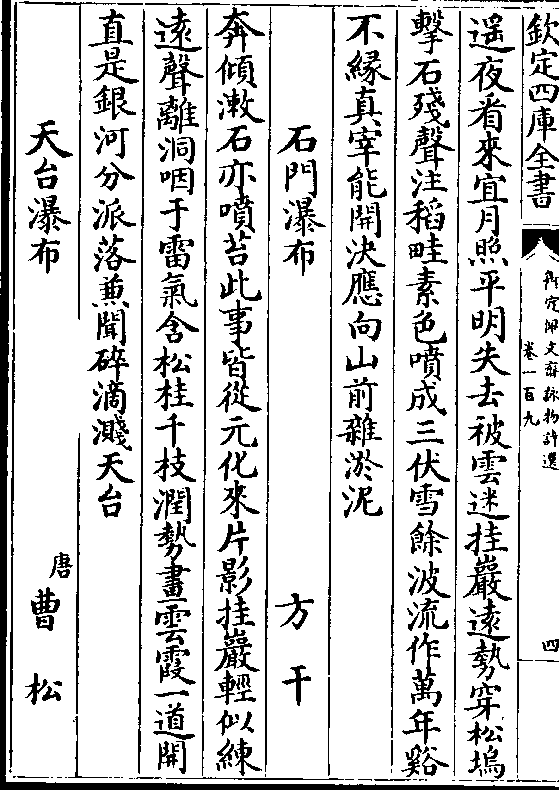 欽定四庫全書
御定佩文齋詠物詩選
卷一百九
四
遥夜看來宜月照平明失去被雲迷挂巖遠勢穿松塢
擊石殘聲注稻畦素色噴成三伏雪餘波流作萬年谿
不緣真宰能開決應向山前雜淤泥
石門瀑布 方干
奔傾漱石亦噴苔此事皆從元化來片影挂巖輕似練
遠聲離洞咽于雷氣含松桂千枝潤勢畫雲霞一道開
直是銀河分派落兼聞碎滴濺天台
天台瀑布 唐曹松